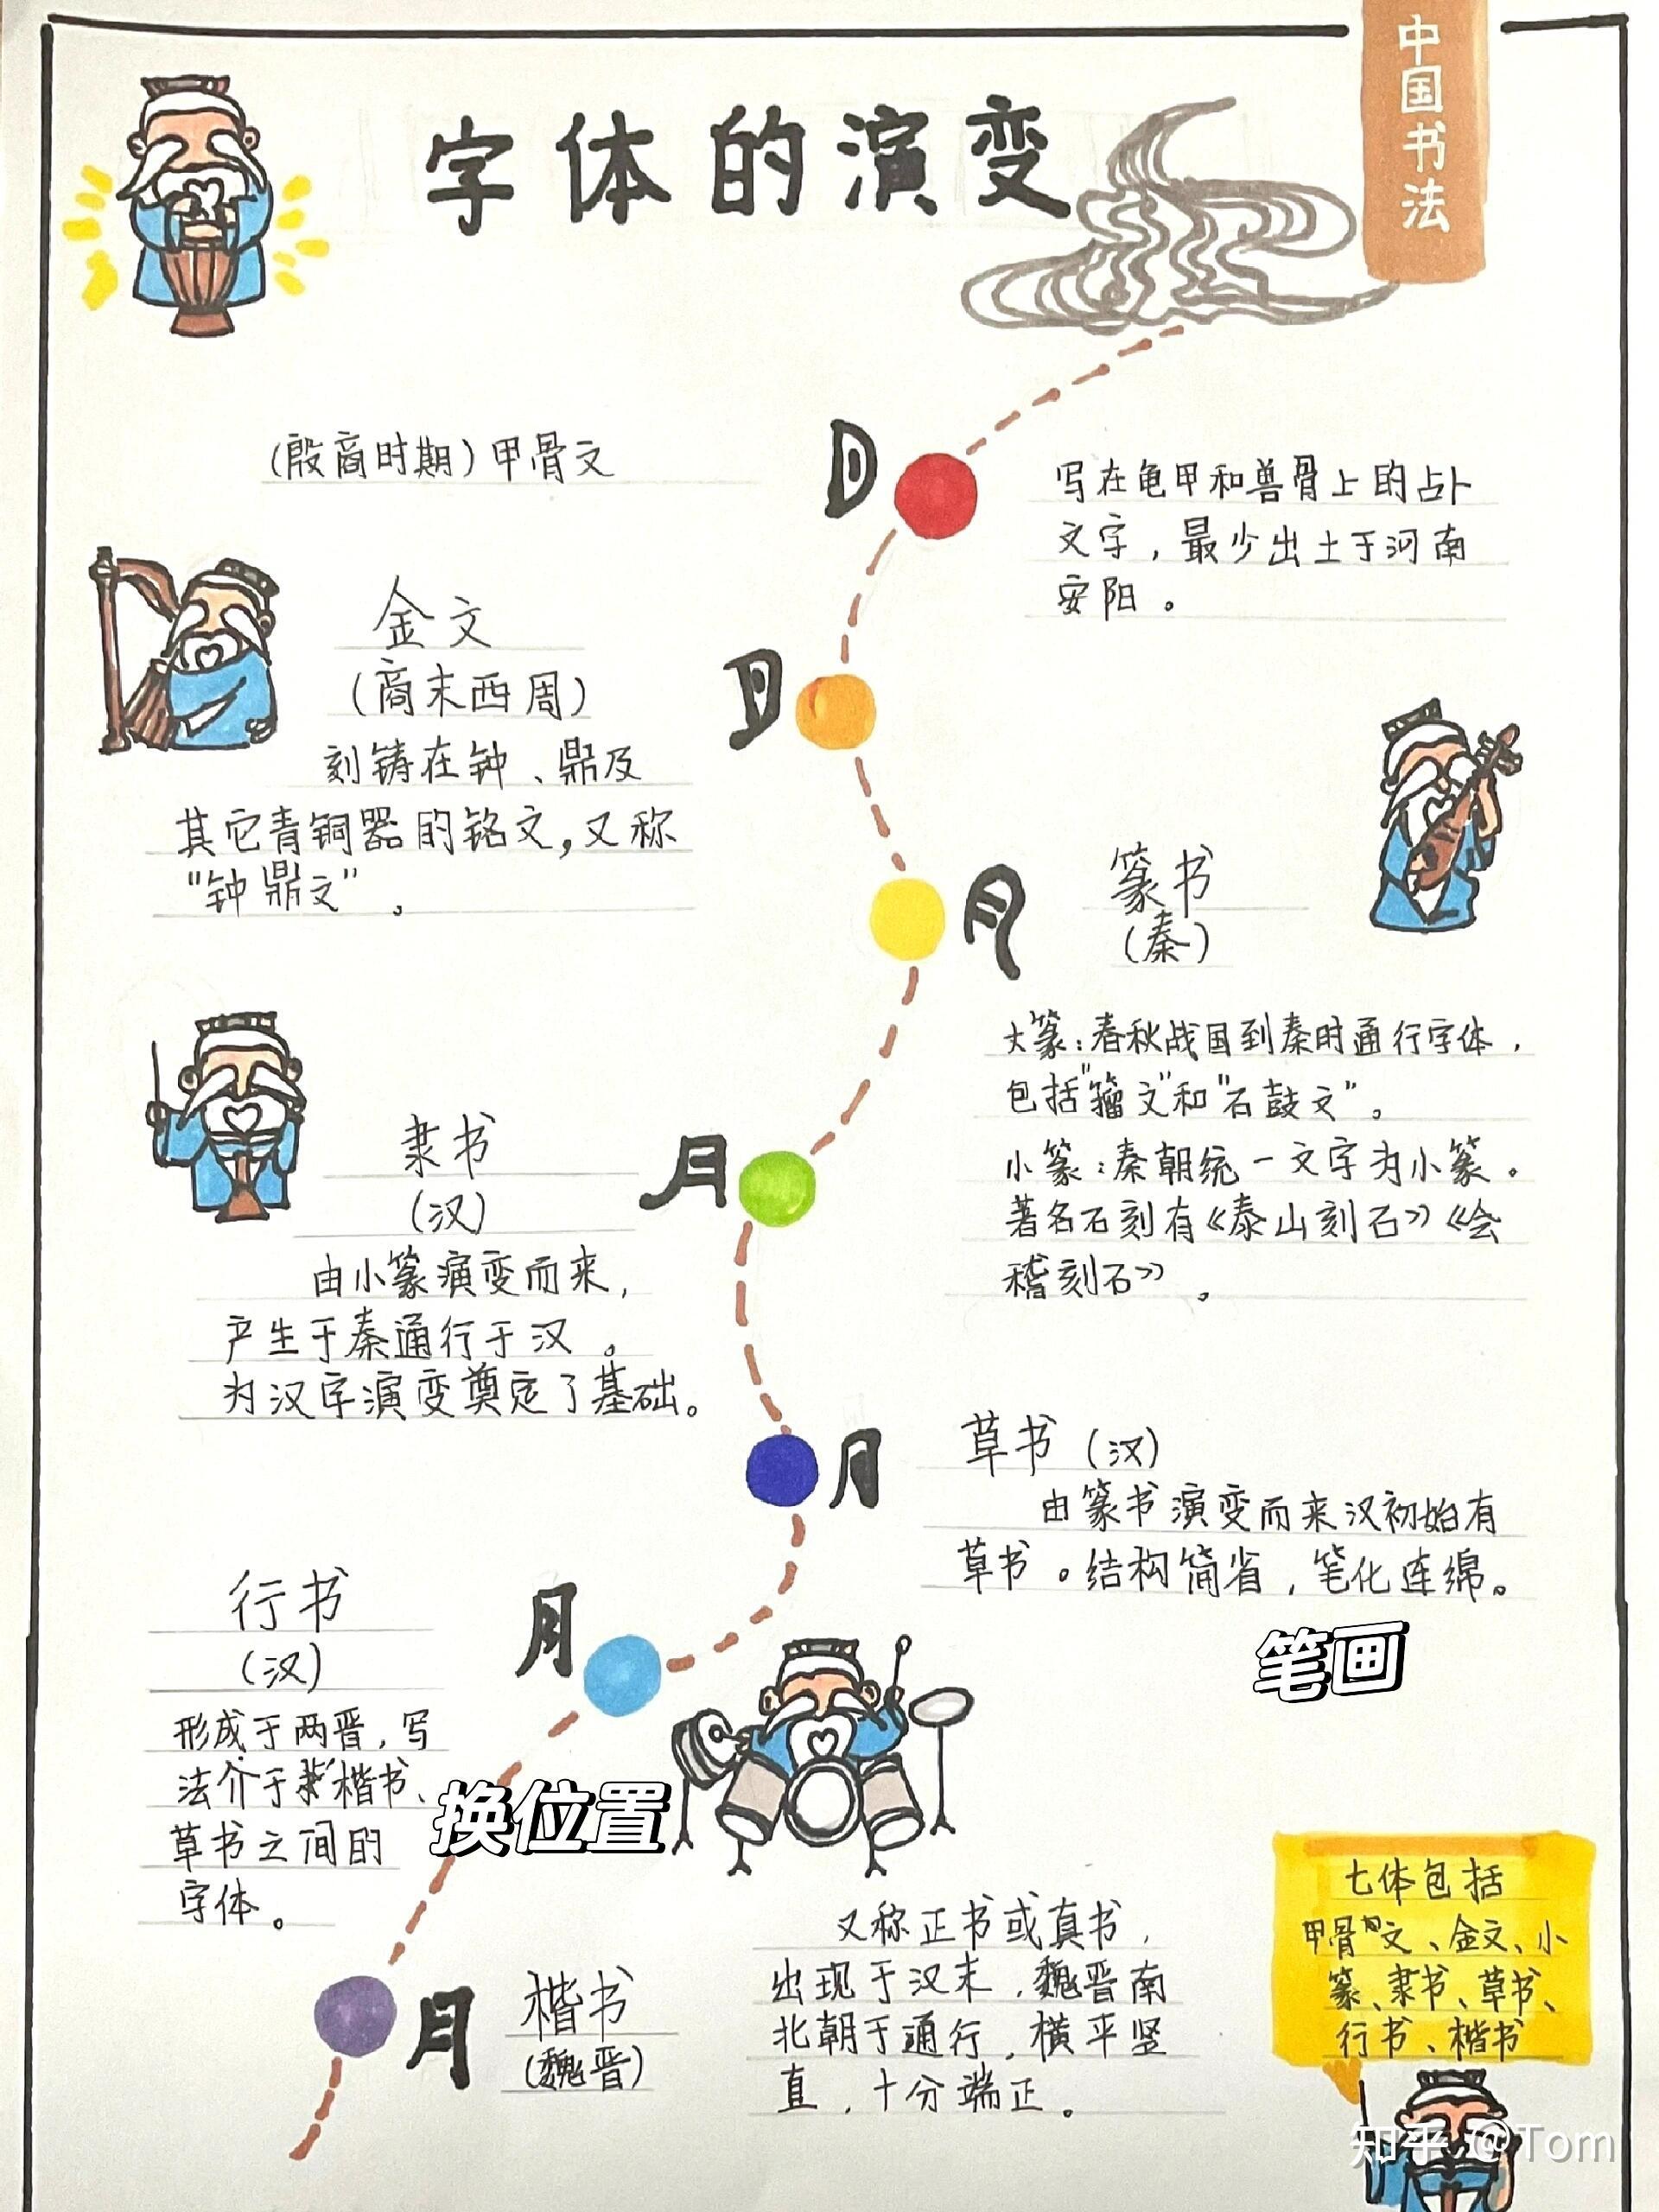 中国书法
字体的演变
(殷商时期)甲骨文
写在龟甲和兽骨上的占卜
文字，最少出土于河南
安阳。
金文
(商末西周)
刻铸在钟、鼎及
其它青铜器的铭文，又称
“钟鼎文”。
篆书
(秦)
大篆：春秋战国到秦时通行字体，
包括“籀文”和“石鼓文”。
小篆：秦朝统一文字为小篆。
著名石刻有《泰山刻石》《会
稽刻石》。
隶书
(汉)
由小篆演变而来，
产生于秦通行于汉。
为汉字演变奠定了基础。
草书(汉)
由篆书演变而来汉初始有
草书。结构简省，笔化连绵。
笔画
行书
(汉)
形成于两晋，写
法介于楷书、
草书之间的
字体。
换位置
楷书
(魏晋)
又称正书或真书，
出现于汉末，魏晋南
北朝于通行，横平竖
直，十分端正。
七体包括
甲骨文、金文、小
篆、隶书、草书、
行书、楷书
月
月
月
月
月
知乎 @Tom